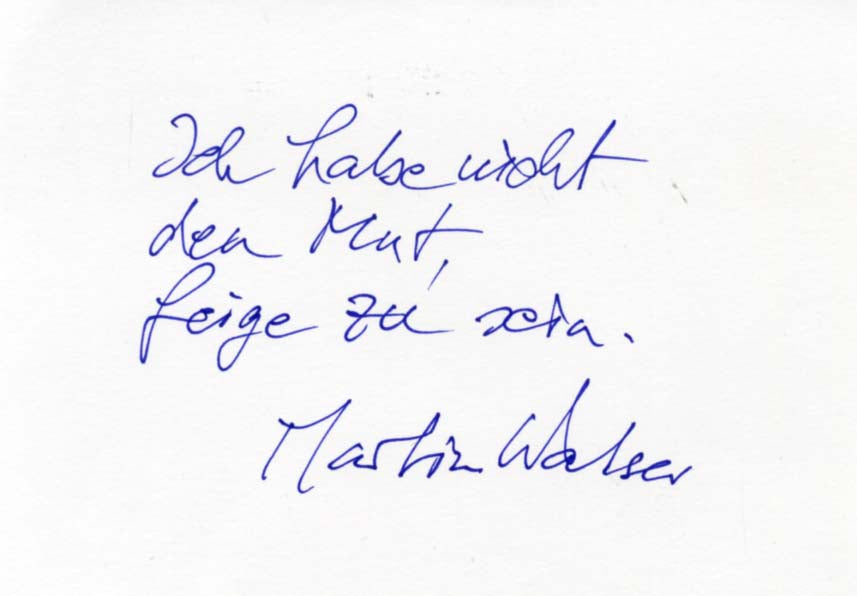 Ich habe nicht
den Mut,
feige zu sein.
Martin Walser